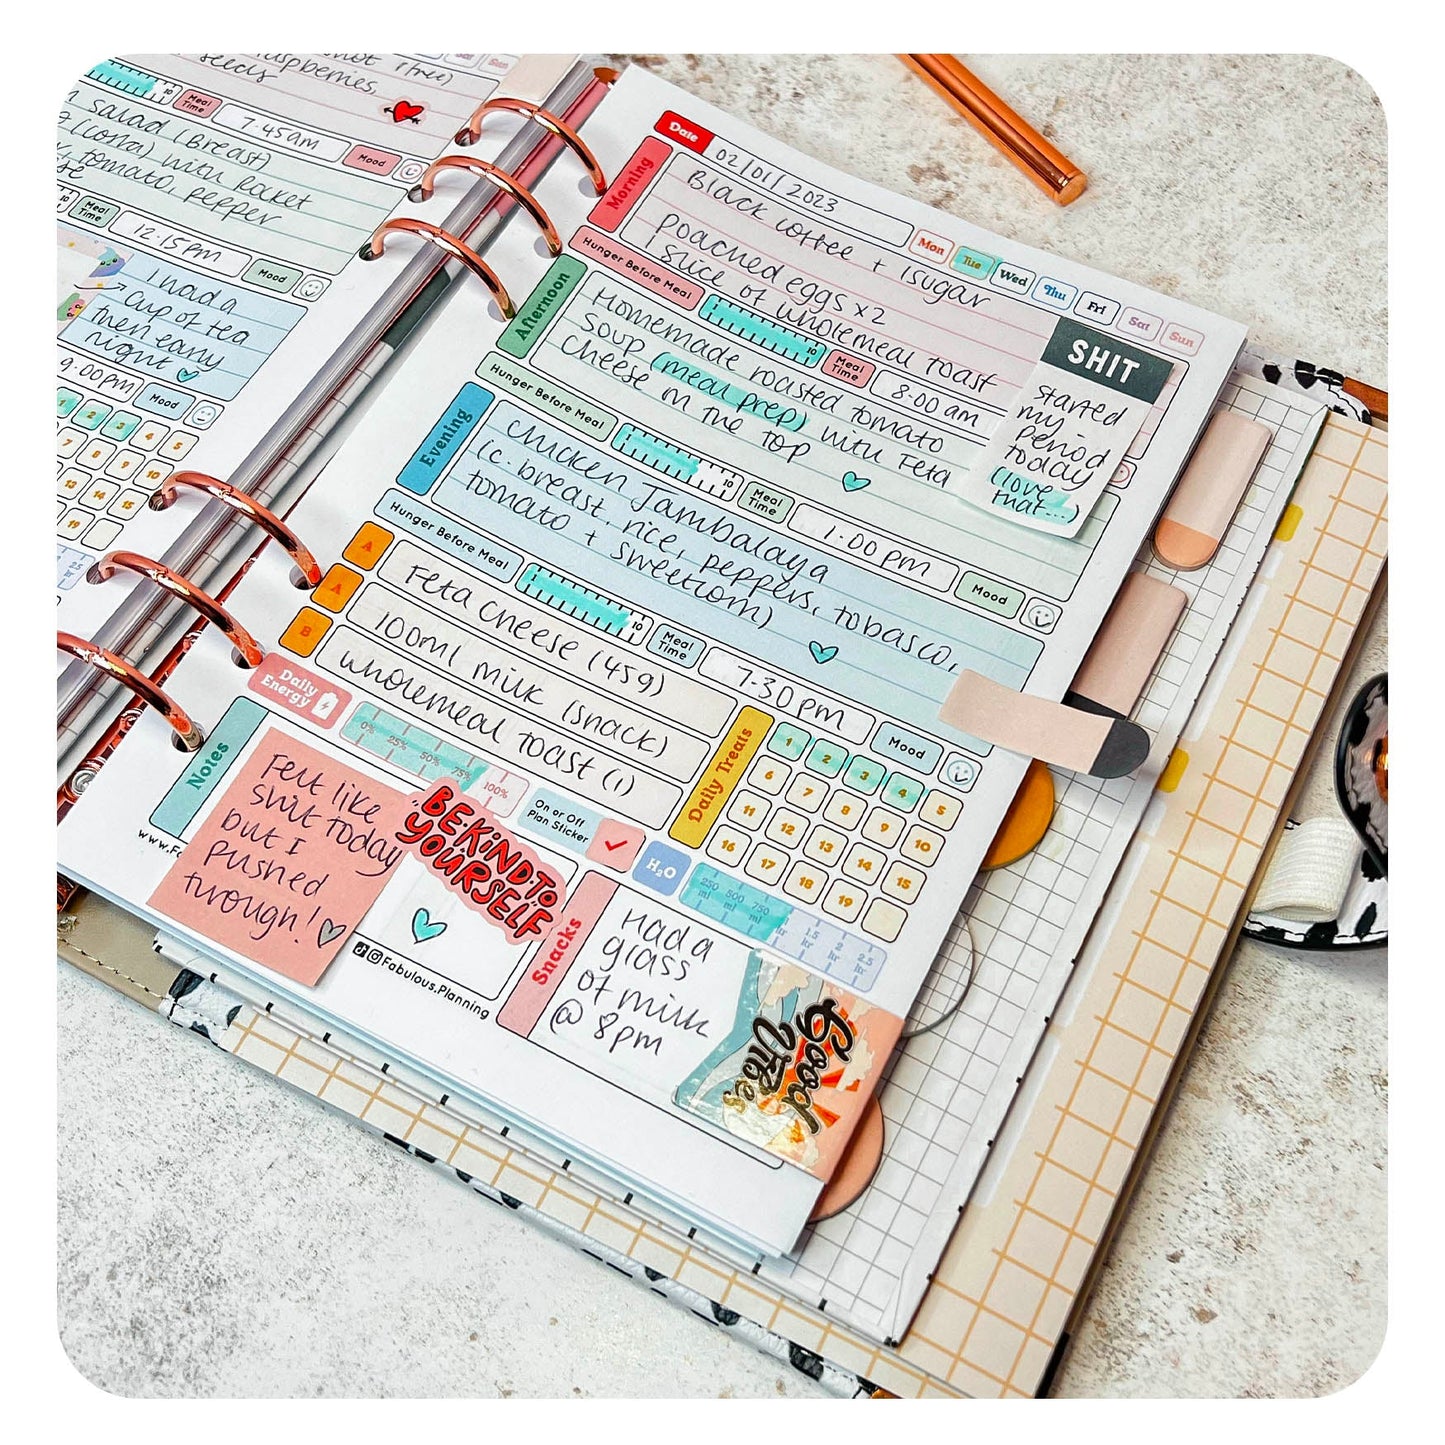 not (tree)
raspberries,
seeds
Sat Sun
10
Meal Time
7.45am
Mood
salad (Breast)
(corra) with Rocket
tomato, pepper
10
Meal Time
12.15pm
Mood
I had a
cup of tea
then early
night
9:00pm
Mood
1 2 3 4 5
7 8 9 10
13 14 15
19
2.5 ltr
Date
02/01/2023
Mon Tue Wed Thu Fri Sat Sun
Morning
Black coffee + 1 sugar
poached eggs x2
1 slice of wholemeal toast
Hunger Before Meal
1 10
Meal Time
8:00 am
SHIT
started
my
period
today
(love
that...)
Afternoon
Homemade roasted tomato
soup (meal prep) with Feta
cheese on the top
Hunger Before Meal
1 10
Meal Time
1.00 pm
Mood
Evening
Chicken Jambalaya
(c.breast, rice, peppers, tobasco,
tomato + sweetcorn)
Hunger Before Meal
1 10
Meal Time
7.30pm
Mood
A
Feta Cheese (45g)
A
100ml milk (snack)
B
wholemeal toast (1)
Daily Treats
1 2 3 4 5
6 7 8 9 10
11 12 13 14 15
16 17 18 19
Daily Energy
0% 25% 50% 75% 100%
On or Off
Plan Sticker
H₂O
250 ml 500 ml 750 ml 1.5 ltr 2 ltr 2.5 ltr
Notes
Felt like
shit today
but I
pushed
through!
BE·KIND·TO
YOURSELF
www.Fa
Fabulous.Planning
Snacks
Had a
glass
of milk
@ 8pm
Good
Vibes